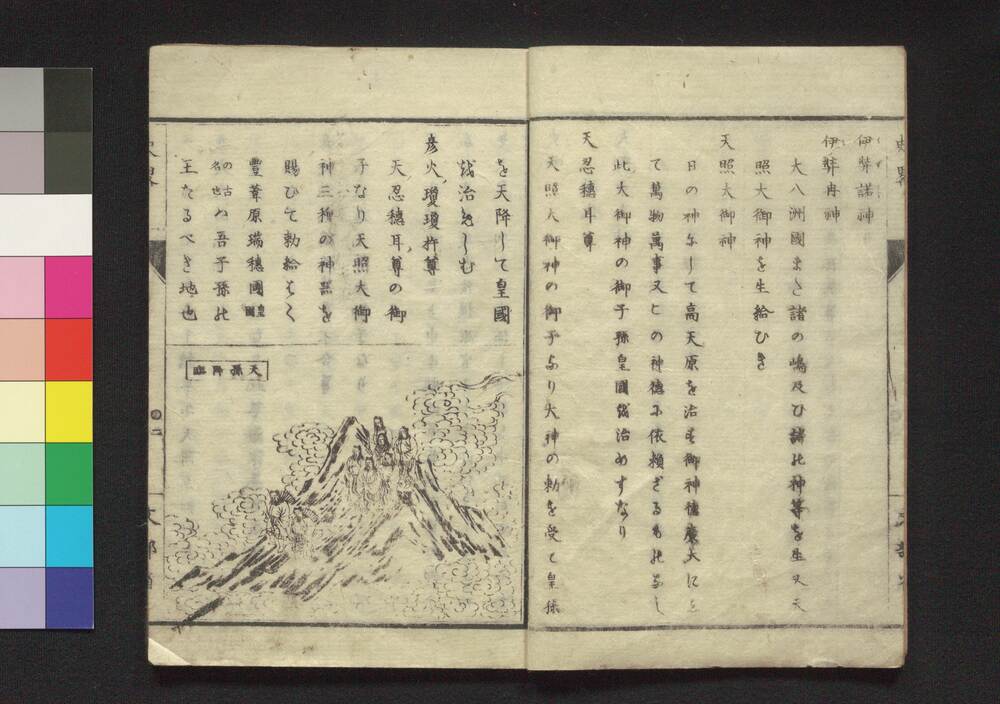 伊弉諾神
伊弉冉神
大八洲國また諸の嶋及び諸の神等を生又天
照大御神を生給ひき
天照大御神
日の神にして高天原を治す御神徳廣大にし
て萬物萬事又この神徳に依頼ざるものなし
此大御神の御子孫皇國を治めすなり
天忍穂耳尊
天照大御神の御子なり大神の勅を受て皇孫
を天降して皇國
を治めしむ
彦火瓊瓊杵尊
天忍穂耳尊の御
子なり天照大御
神三種の神器を
賜ひて勅給はく
豐葦原瑞穂國皇國
の古名也ハ吾子孫の
王たるべき地也
天孫降臨
二